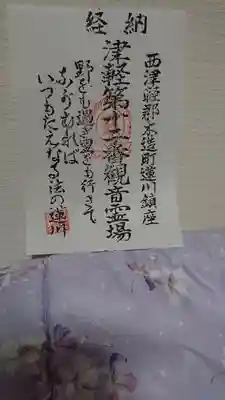 納経
西津軽郡木造町蓮川鎮座
津軽第十二番觀音霊場
野をも過ぎ里をも行きて
ながむれば
いつもたえなる法の蓮川